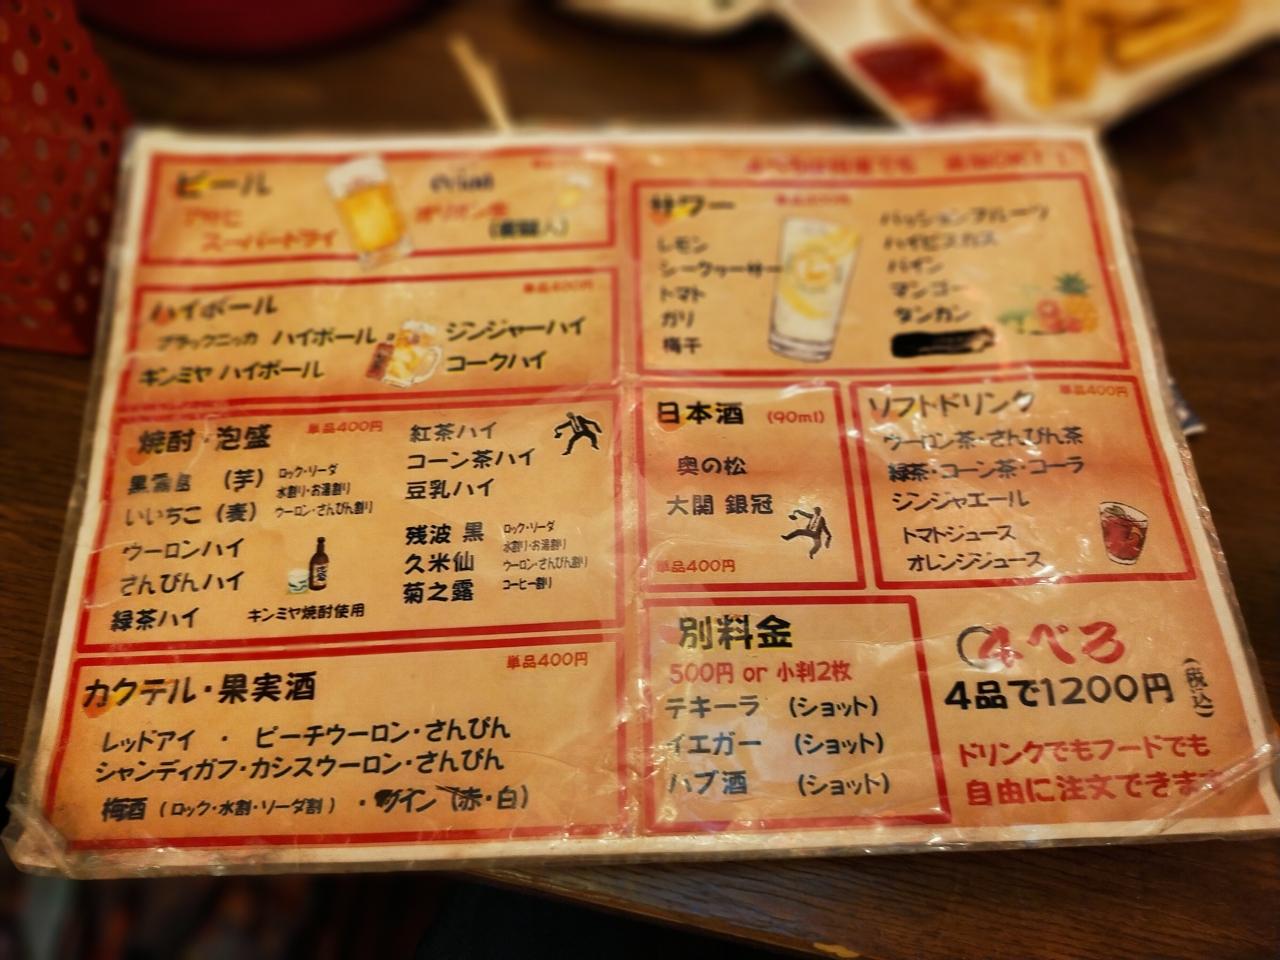 ビール
アサヒ
スーパードライ
オリオン生
ハイボール
単品400円
ブラックニッカ ハイボール
ジンジャーハイ
キンミヤ ハイボール
コークハイ
焼酎・泡盛
単品400円
黒霧島 (芋)
ロック・ソーダ
水割り・お湯割り
いいちこ (麦)
ウーロン・さんぴん割り
ウーロンハイ
さんぴんハイ
緑茶ハイ
キンミヤ焼酎使用
紅茶ハイ
コーン茶ハイ
豆乳ハイ
残波 黒
久米仙
菊之露
ロック・ソーダ
水割り・お湯割り
ウーロン・さんぴん割り
コーヒー割り
カクテル・果実酒
単品400円
レッドアイ ・ ピーチウーロン・さんぴん
シャンディガフ・カシスウーロン・さんぴん
梅酒 (ロック・水割・ソーダ割) ・ワイン (赤・白)
サワー
レモン
シークヮーサー
トマト
ガリ
梅干
パッションフルーツ
ハイビスカス
パイン
マンゴー
タンカン
日本酒 (90ml)
奥の松
大関 銀冠
単品400円
ソフトドリンク
単品400円
ウーロン茶・さんぴん茶
緑茶・コーン茶・コーラ
ジンジャエール
トマトジュース
オレンジジュース
別料金
500円 or 小判2枚
テキーラ (ショット)
イエガー (ショット)
ハブ酒 (ショット)
4べろ
4品で1200円(税込)
ドリンクでもフードでも
自由に注文できます